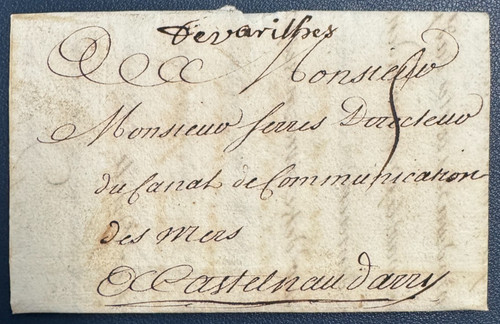 Devarilhes
A Monsieur
Monsieur Serres Directeur
du Canal de Communication
des Mers
A Castelnaudarry